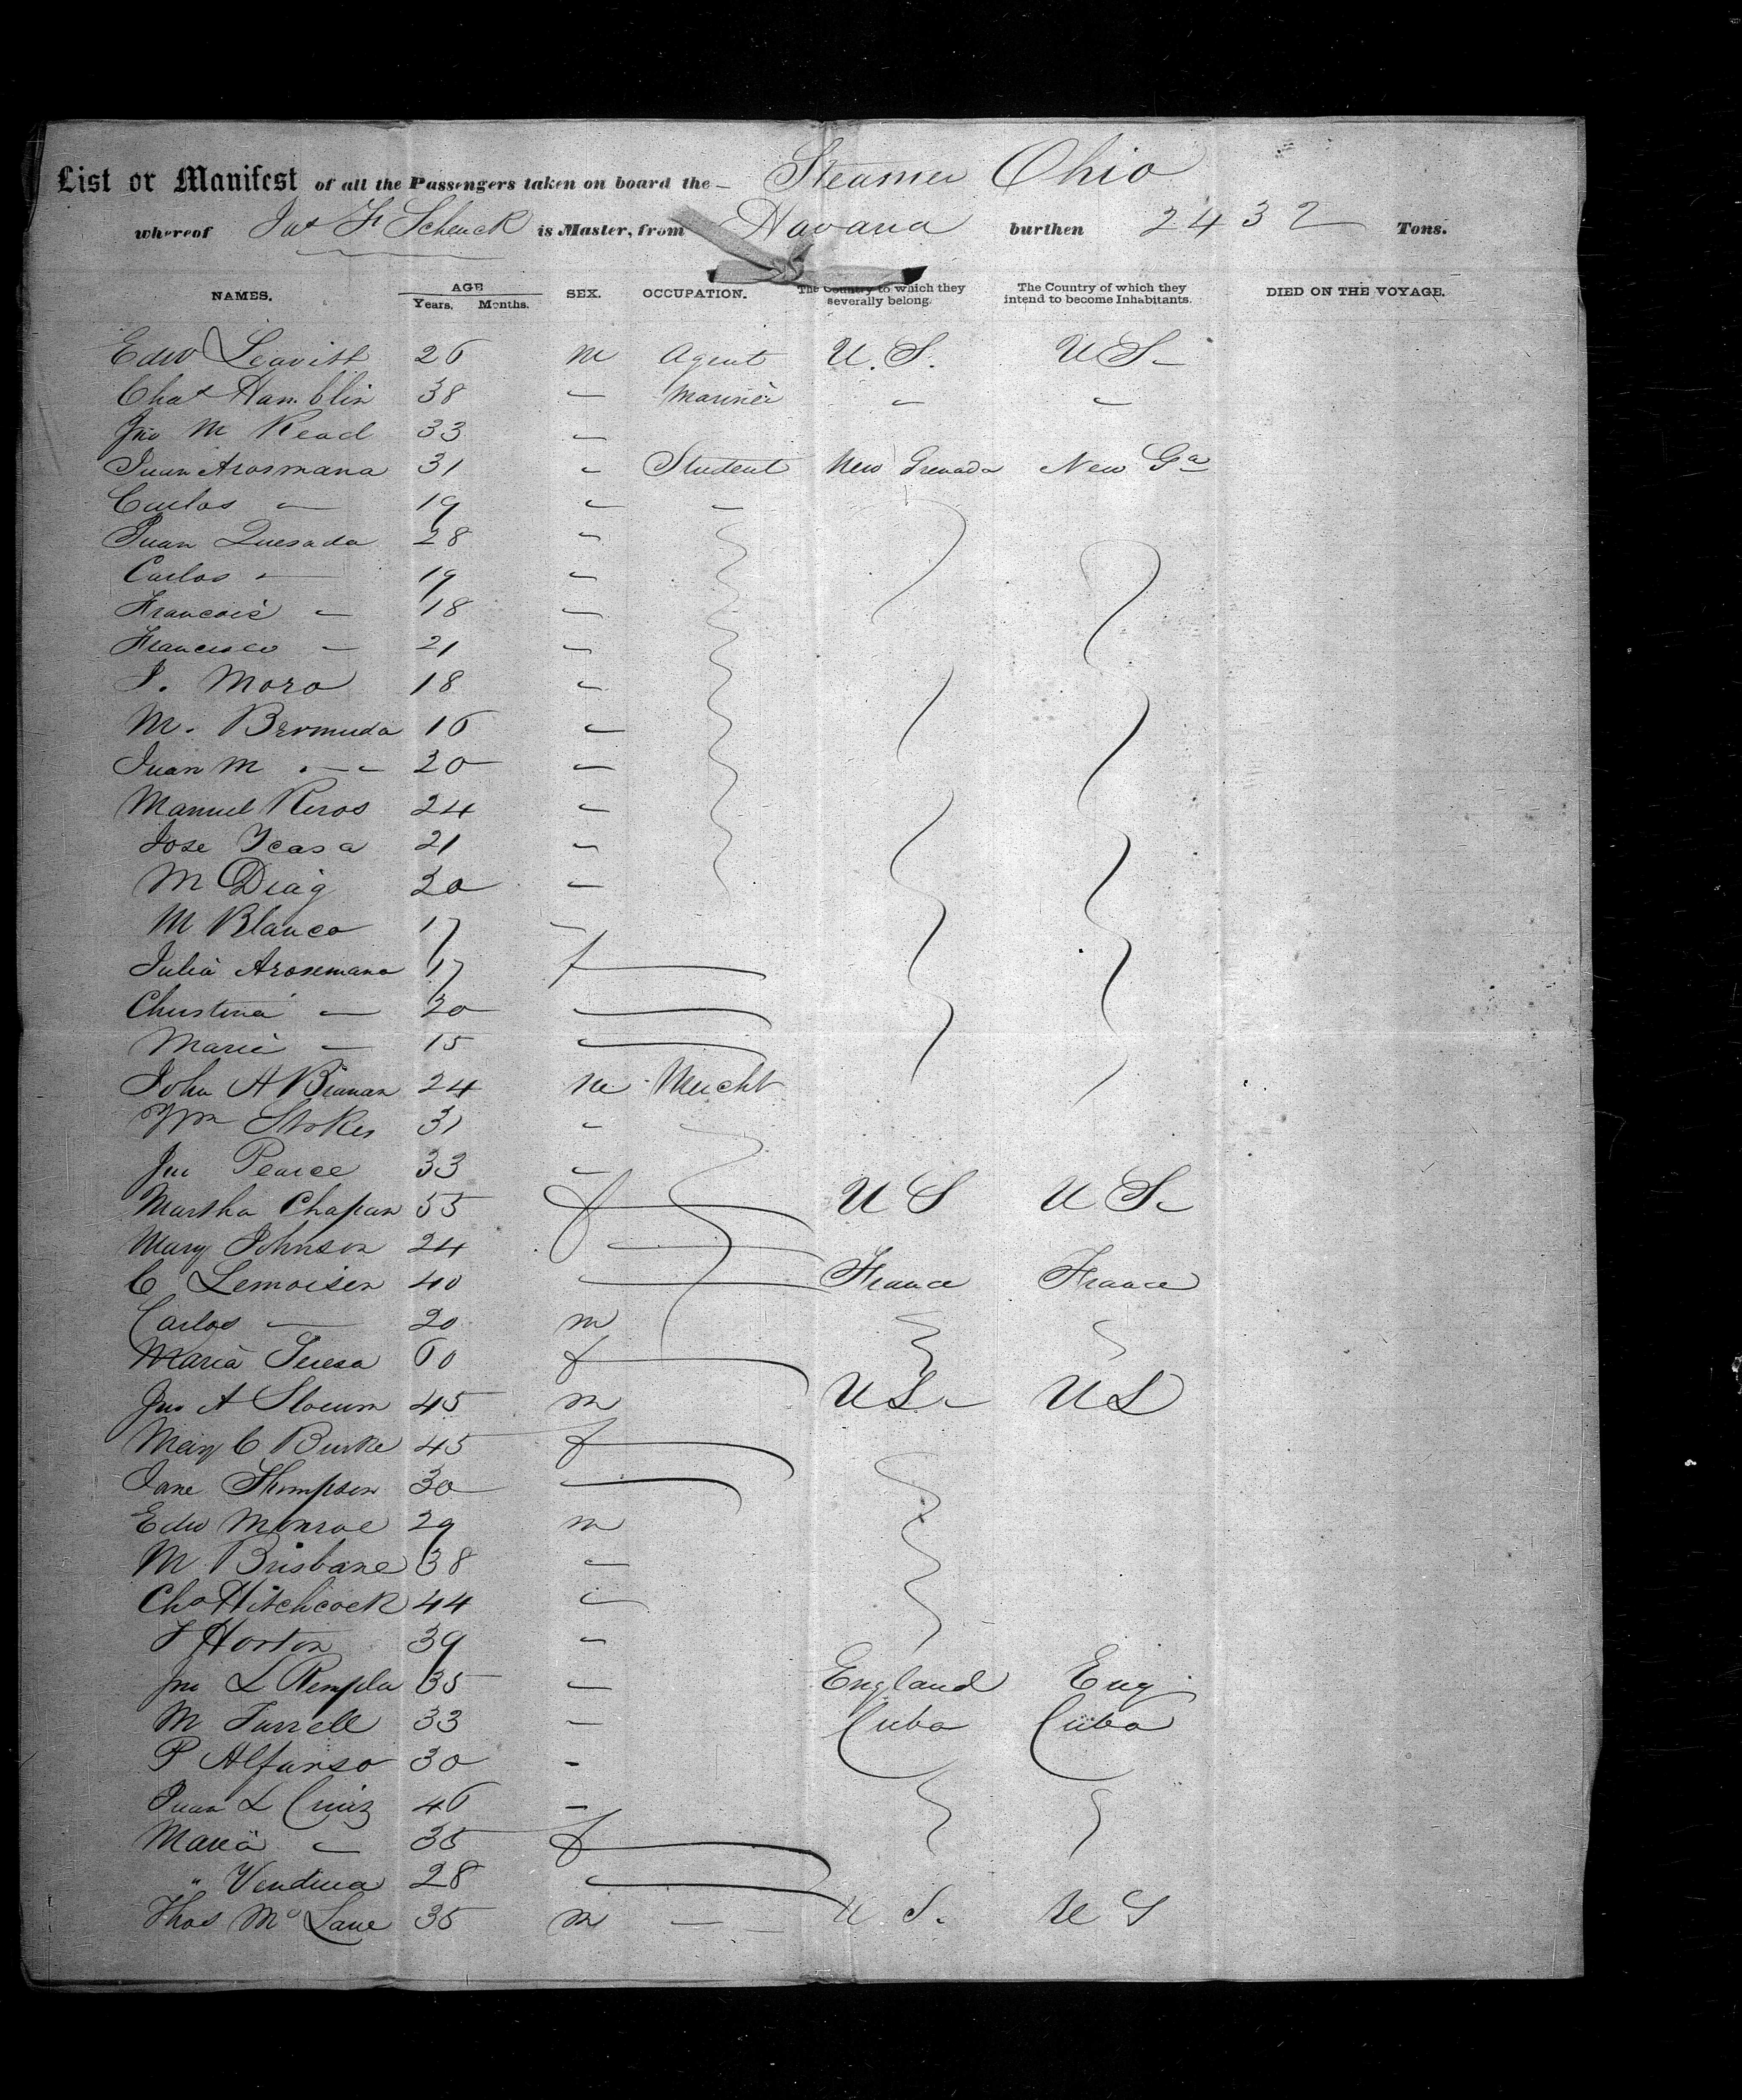 List or Manifest of all the Passengers taken on board the Steamer Ohio
whereof Jas F Schenck is Master, from Havana burthen 2432 Tons.
NAMES. AGE Years. Months. SEX. OCCUPATION. The Country to which they severally belong. The Country of which they intend to become Inhabitants. DIED ON THE VOYAGE.
Edw Leavitt 26 m Agent U.S. US
Chas Hamblin 38 — Mariner — —
Jno M Read 33 —
Juan Arosmana 31 — Student New Grenada New Ga
Carlos — 19 — —
Juan Quesada 28 —
Carlos — 19 —
Francois — 18 —
Francisco — 21 —
J. Moro 18 —
M. Bermuda 16 —
Juan M — 20 —
Manuel Reros 24 —
Jose Ycasa 21 —
M Diag 20 —
M Blanco 17 —
Julia Arosemana 17 f
Christina — 20 —
Maria — 15 —
John A 24 m Mercht
Wm Stokes 31 —
Jno Pearce 33 —
Martha Chapan 55 f U S U S
Mary Johnson 24 —
C Lemoisen 40 — France France
Carlos — 20 m
Maria Teresa 60 f
Jno A Slocum 45 m US US
Mary C Burke 45 f
Jane Thompson 30 —
Edw Monroe 29 m
M Brisbane 38 —
Chs Hitchcock 44 —
F Horton 39 —
Jno L 35 — England Eng
M Turrell 33 — Cuba Cuba
P Alfonso 30 -
Juan L Cruiz 46 —
Maria — 35 f
" 28 —
Thos Mc Lane 35 m — U S. U S